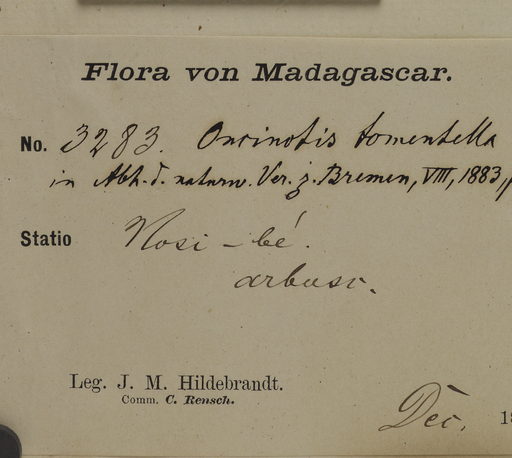 Flora von Madagascar.
No. 3283. Oncinotis tomentella
in Abh. d. naturw. Ver. z. Bremen, VIII, 1883, p
Statio Nosi-bé.
arbusc.
Leg. J. M. Hildebrandt.
Comm. C. Rensch.
Dec. 18